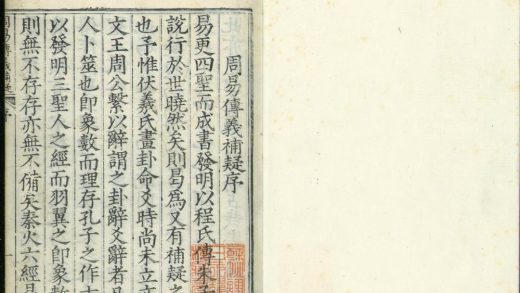 周易傳義補疑序
易更四聖而成書發明以程氏傳朱子
說行於世曉然矣則曷為又有補疑之
也予惟伏羲氏畫卦命爻時尚未立文
文王周公繫以辭謂之卦辭爻辭者凡
人卜筮也卽象數而理存孔子之作十
以發明三聖人之經而羽翼之卽象數
則無不存存亦無不備矣秦火六經
周易傳義補疑 序 一